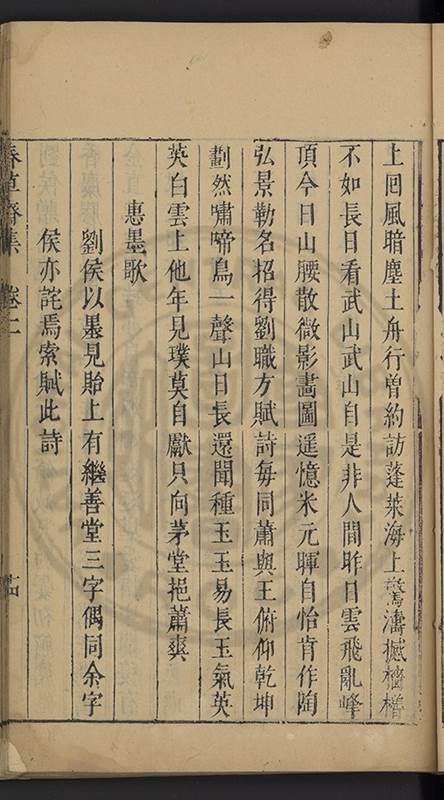 上回風暗塵土舟行曾約訪蓬萊海上驚濤撼檣櫓
不如長日看武山武山自是非人間昨日雲飛亂峰
頂今日山腰散微影畫圖遥憶米元暉自怡肯作陶
弘景勒名招得劉職方賦詩每同蕭與王俯仰乾坤
劃然嘯啼鳥一聲山日長還聞種玉玉易長玉氣英
英白雲上他年見璞莫自獻只向茅堂挹蕭爽
惠墨歌
劉侯以墨見貽上有繼善堂三字偶同余字
侯亦詫焉索賦此詩
春草齋集 卷二